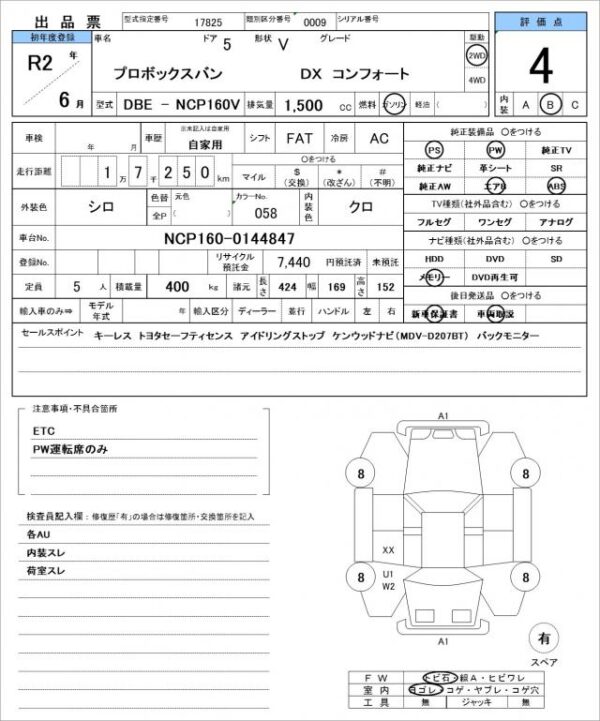 出品票 型式指定番号 17825 類別区分番号 0009 シリアル番号
評価点
初年度登録 車名 ドア 5 形状 V グレード 駆動
R2 年 プロボックスバン DX コンフォート 2WD
4WD
4
6 月 型式 DBE - NCP160V 排気量 1,500 cc 燃料 ガソリン 軽油 ( )
内装 A B C
車検 年 月 車歴 ※未記入は自家用 自家用 シフト FAT 冷房 AC
純正装備品 〇をつける
PS PW 純正TV
走行距離 1 万 7 千 2 5 0 km 〇をつける マイル $ (交換) * (改ざん) # (不明)
純正ナビ 革シート SR
純正AW エアB ABS
外装色 シロ 色替 全P 元色 ( ) カラーNo. 058 内装色 クロ
TV種類(社外品含む) 〇をつける
フルセグ ワンセグ アナログ
車台No. NCP160-0144847
ナビ種類(社外品含む) 〇をつける
登録No. リサイクル預託金 7,440 円預託済 未預託
HDD DVD SD
メモリー DVD再生可
定員 5 人 積載量 400 kg 諸元 長さ 424 幅 169 高さ 152
後日発送品 〇をつける
輸入車のみ⇒ モデル年式 年 輸入区分 ディーラー 並行 ハンドル 左 右
新車保証書 車両取説
セールスポイント キーレス トヨタセーフティセンス アイドリングストップ ケンウッドナビ(MDV-D207BT) バックモニター
注意事項・不具合箇所
ETC
PW運転席のみ
検査員記入欄：修復歴「有」の場合は修復箇所・交換箇所を記入
各AU
内装スレ
荷室スレ
A1
8 8
XX
8 U1 8
W2
A1
有
スペア
FW トビ石・線A・ヒビワレ
室内 ヨゴレ・コゲ・ヤブレ・コゲ穴
工具 無 ジャッキ 無